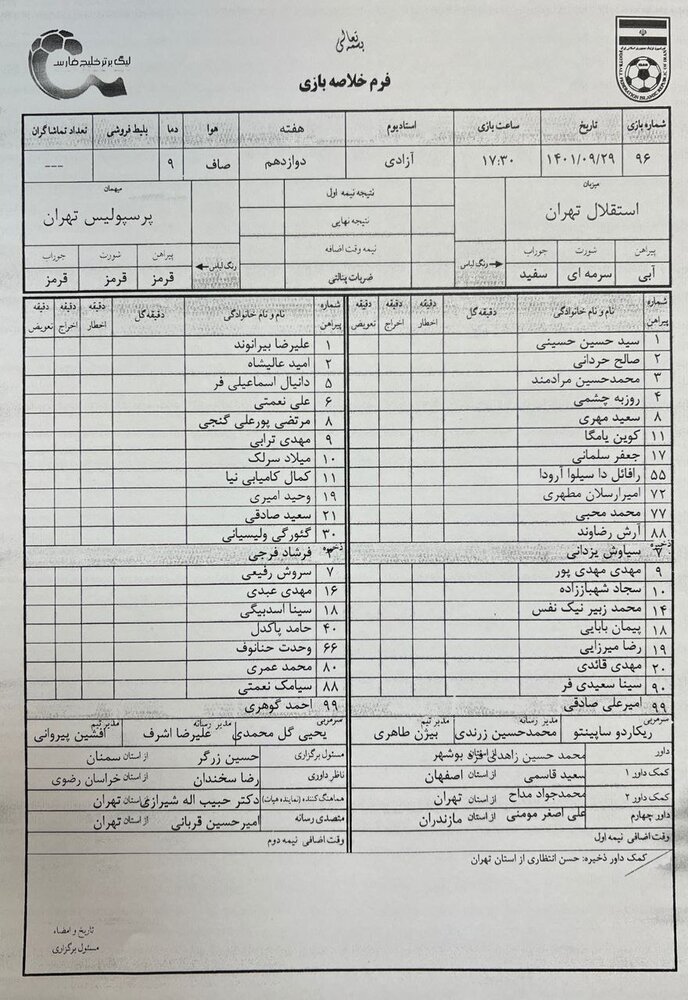 بسمه تعالی
لیگ برتر خلیج فارس
فرم خلاصه بازی
شماره بازی تاریخ ساعت بازی استادیوم هفته هوا دما بلیط فروشی تعداد تماشاگران
۹۶ ۱۴۰۱/۰۹/۲۹ ۱۷:۳۰ آزادی دوازدهم صاف ۹ ---
میزبان نتیجه نیمه اول میهمان
استقلال تهران نتیجه نهایی پرسپولیس تهران
نیمه وقت اضافه
ضربات پنالتی
پیراهن شورت جوراب رنگ لباس پیراهن شورت جوراب رنگ لباس
آبی سرمه ای سفید قرمز قرمز قرمز
شماره پیراهن نام و نام خانوادگی دقیقه گل دقیقه اخطار دقیقه اخراج دقیقه تعویض شماره پیراهن نام و نام خانوادگی دقیقه گل دقیقه اخطار دقیقه اخراج دقیقه تعویض
۱ سید حسین حسینی ۱ علیرضا بیرانوند
۲ صالح حردانی ۲ امید عالیشاه
۳ محمدحسین مرادمند ۵ دانیال اسماعیلی فر
۴ روزبه چشمی ۶ علی نعمتی
۸ سعید مهری ۸ مرتضی پورعلی گنجی
۱۱ کوین یامگا ۹ مهدی ترابی
۱۷ جعفر سلمانی ۱۰ میلاد سرلک
۵۵ رافائل دا سیلوا آرودا ۱۱ کمال کامیابی نیا
۷۲ امیرارسلان مطهری ۱۹ وحید امیری
۷۷ محمد محبی ۲۱ سعید صادقی
۸۸ آرش رضاوند ۳۰ گئورگی ولیسیانی
ذخیره سیاوش یزدانی ذخیره فرشاد فرجی
۹ مهدی مهدی پور ۷ سروش رفیعی
۱۰ سجاد شهباززاده ۱۶ مهدی عبدی
۱۴ محمد زبیر نیک نفس ۱۸ سینا اسدبیگی
۱۸ پیمان بابایی ۴۰ حامد پاکدل
۱۹ رضا میرزایی ۶۶ وحدت حنانوف
۲۰ مهدی قائدی ۸۰ محمد عمری
۹۰ سینا سعیدی فر ۸۸ سیامک نعمتی
۹۹ امیرعلی صادقی ۹۹ احمد گوهری
سرمربی ریکاردو ساپینتو مدیر رسانه محمدحسین زرندی مدیر تیم بیژن طاهری سرمربی یحیی گل محمدی مدیر رسانه علیرضا اشرف مدیر تیم افشین پیروانی
داور محمد حسین زاهدی فرد از استان بوشهر مسئول برگزاری حسین زرگر از استان سمنان
کمک داور ۱ سعید قاسمی از استان اصفهان ناظر داوری رضا سخندان از استان خراسان رضوی
کمک داور ۲ محمدجواد مداح از استان تهران هماهنگ کننده (نماینده هیات) دکتر حبیب اله شیرازی از استان تهران
داور چهارم علی اصغر مومنی از استان مازندران متصدی رسانه امیرحسین قربانی از استان تهران
وقت اضافی نیمه اول وقت اضافی نیمه دوم
کمک داور ذخیره: حسن انتظاری از استان تهران
تاریخ و امضاء
مسئول برگزاری